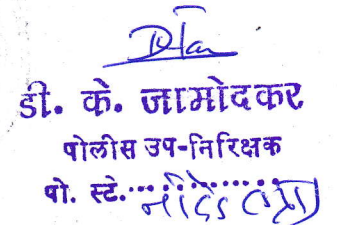 डी. के. जामोदकर
पोलीस उप-निरिक्षक
पो. स्टे.